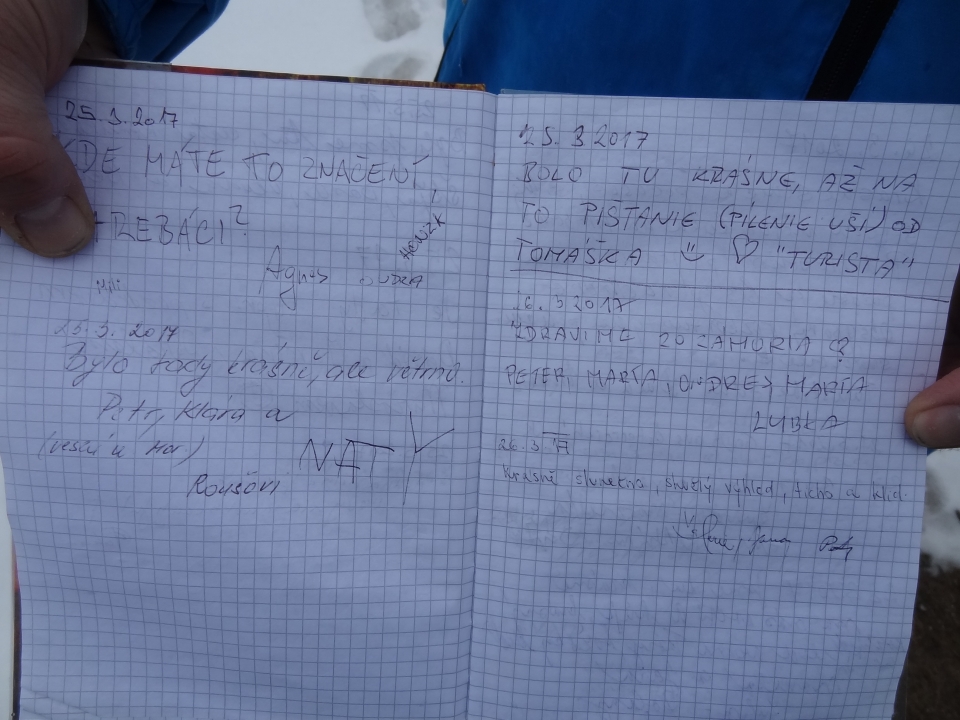 25.3.2017
DE MÁTE TO ZNAČENÍ,
HŘEBÁCI?
Agnes
25.3. 2017
Bylo tady krásně, ale větrno.
Petr, Klára a
NATY
(vesmí u Hor)
Roušovi
25.3 2017
BOLO TU KRÁSNE, AŽ NA
TO PIŠTANIE (PÍLENIE UŠÍ) OD
TOMÁŠKA ♡ "TURISTA"
26.3 2017
ZDRAVIME ZO ZÁHORIA
PETER, MARTA, ONDREJ, MARTA
ĽUBKA
26.3.17
Krásně slunečno, skvělý výhled, ticho a klid.
Jana